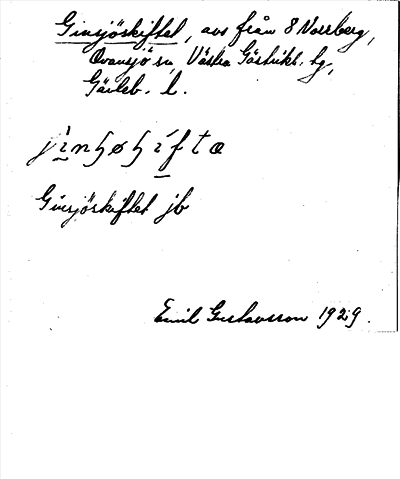 Ginsjöskiftet, avs från 8 Norrberg,
Ovansjö sn, Västra Gästrikl. tg,
Gävleb. l.
Ginsjöskiftet jb
Emil Gustavsson 1929.